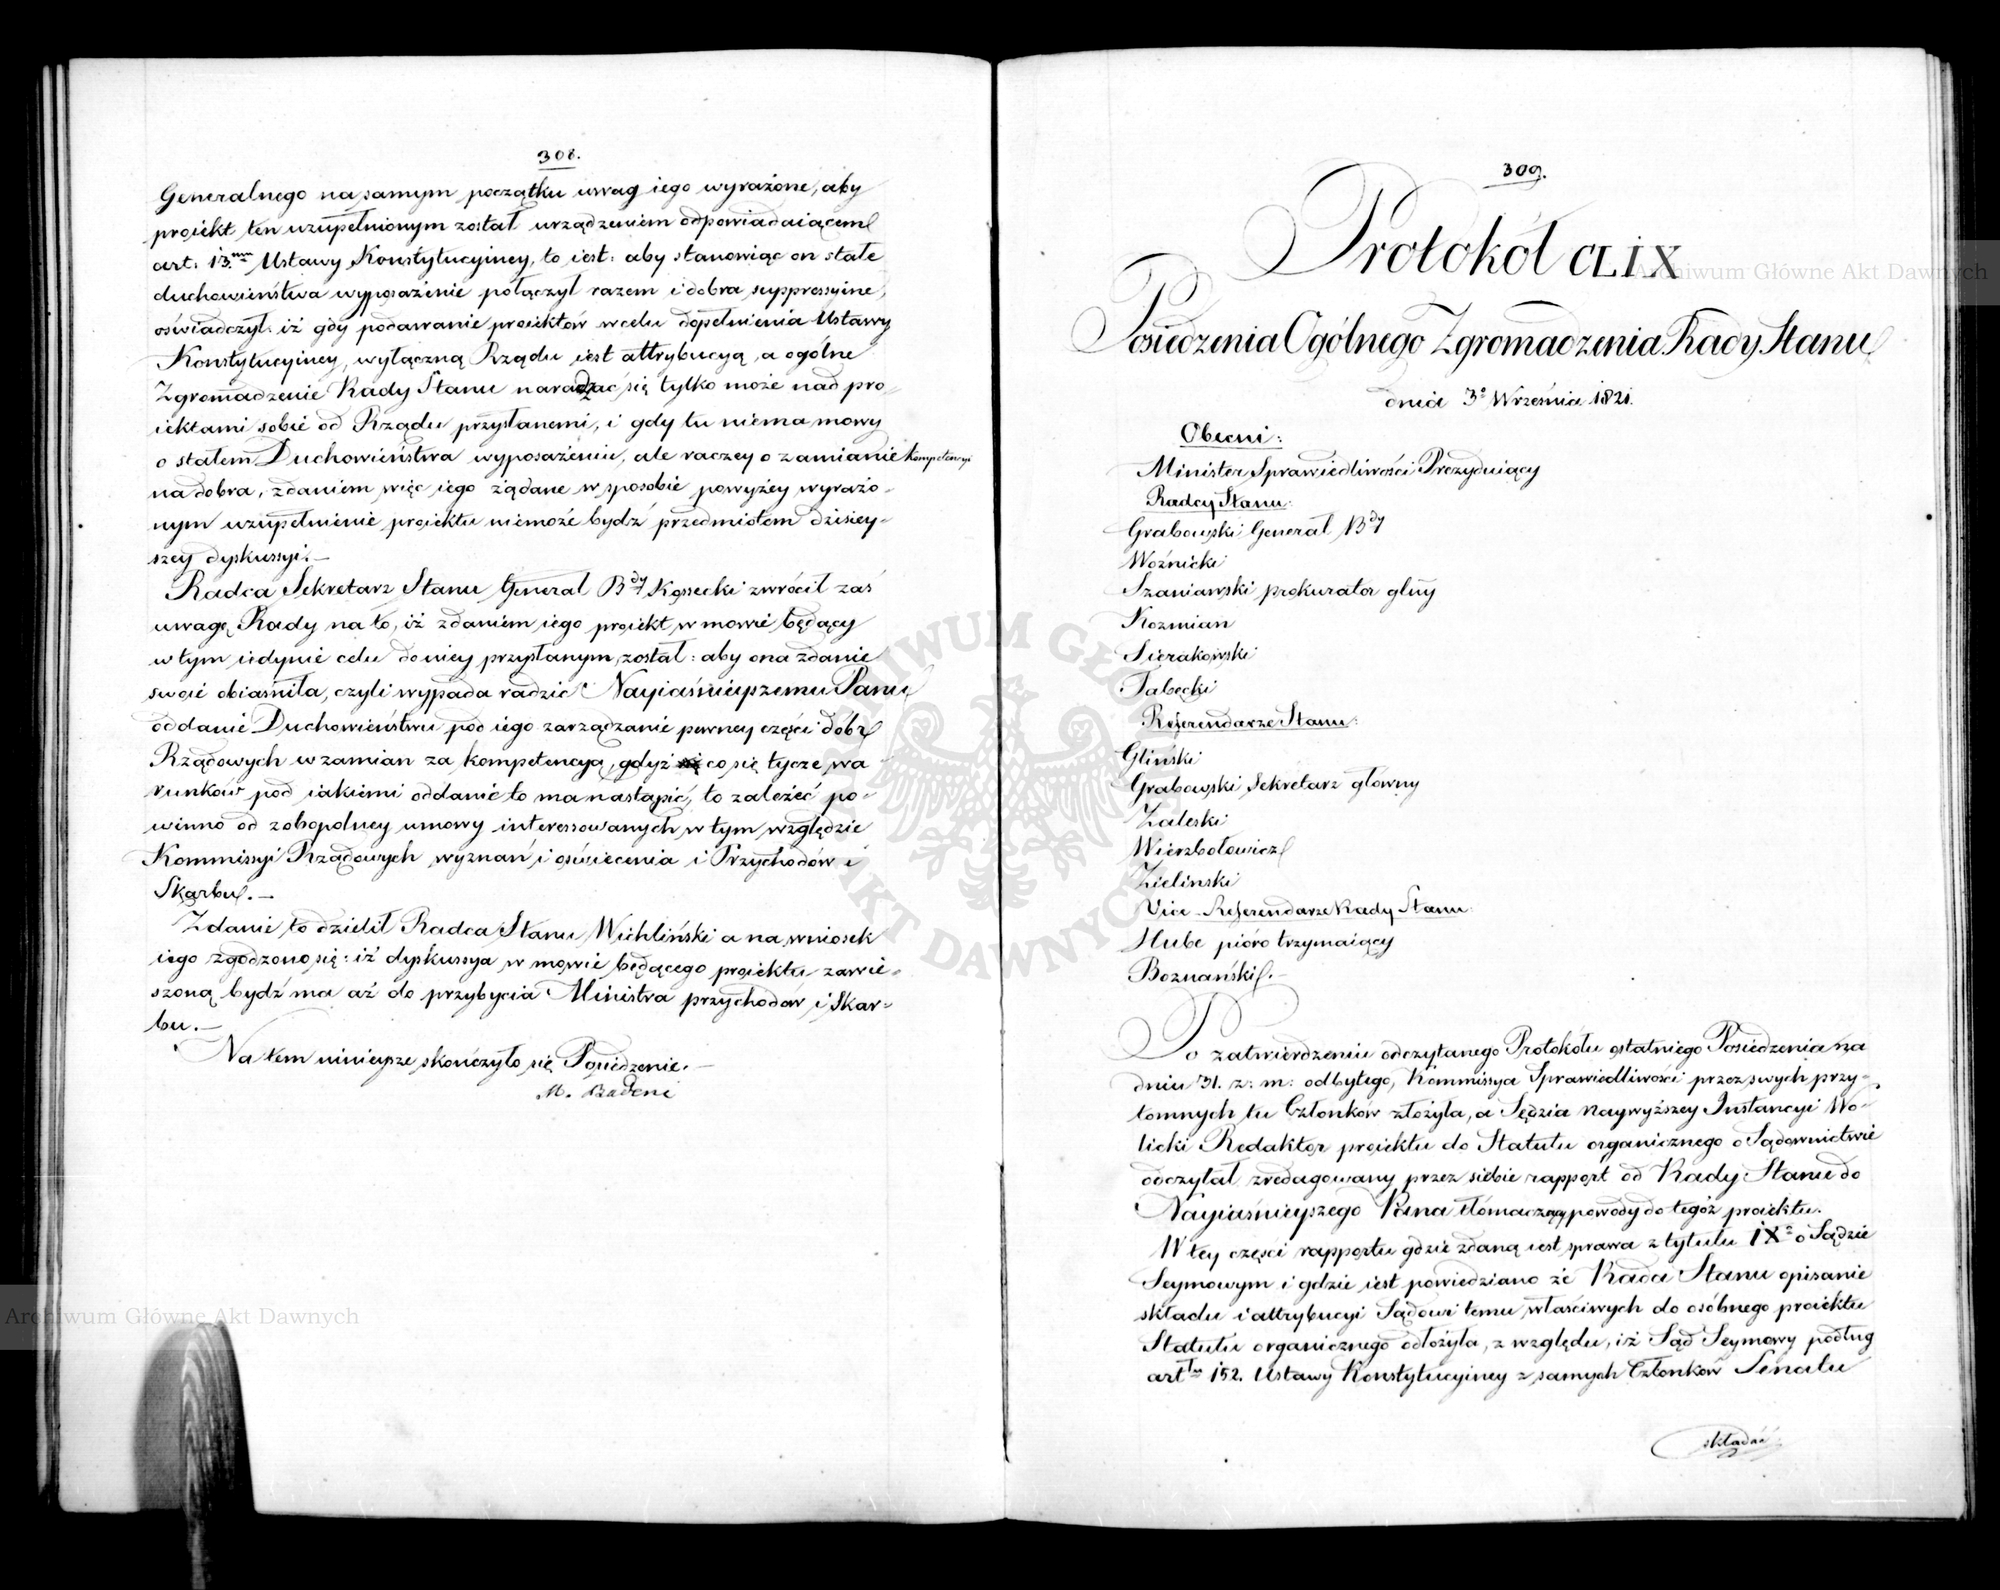 308.
Generalnego na samym początku uwag iego wyrażone, aby
proiekt ten uzupełnionym został urządzeniem odpowiadaiącem
art: 13.mu Ustawy Konstytucyiney, to iest: aby stanowiąc on stałe
duchowieństwa wyposażenie połączył razem i dobra suppressyine,
oświadczył: iż gdy podawanie proiektów w celu dopełnienia Ustawy
Konstytucyiney, wyłączną Rządu iest attrybucyą, a ogólne
Zgromadzenie Rady Stanu naradzać się tylko może nad pro-
iektami sobie od Rządu przysłanemi, i gdy tu niema mowy
o stałem Duchowieństwa wyposażeniu, ale raczey o zamianie kompetencyi
na dobra, zdaniem więc iego żądane w sposobie powyżey wyrażo-
nym uzupełnienie proiektu niemoże bydź przedmiotem dzisiey-
szey dyskussyi.—
Radca Sekretarz Stanu Generał Bdy Kossecki zwrócił zaś
uwagę Rady na to, iż zdaniem iego proiekt w mowie będący
w tym iedynie celu do niey przysłanym, został: aby ona zdanie
swoie obiaśniła, czyli wypada radzić Nayiaśnieyszemu Panu
oddanie Duchowieństwu pod iego zarządzanie pewney części dóbr
Rządowych w zamian za kompetencyą, gdyż co się tycze wa-
runków pod iakiemi oddanie to ma nastąpić, to zależeć po-
winno od zobopolney umowy interessowanych w tym względzie
Kommissyi Rządowych wyznań i oświecenia i Przychodów i
Skarbu.—
Zdanie to dzielił Radca Stanu Wichliński a na wniosek
iego zgodzono się: iż dyskussya w mowie będącego proiektu zawie-
szoną bydź ma aż do przybycia Ministra przychodów i Skar-
bu.—
Na tem ninieysze skończyło się Posiedzenie.—
M. Badeni
309.
Protokół CLIX
Posiedzenia Ogólnego Zgromadzenia Rady Stanu
dnia 3o Września 1821.
Obecni:
Minister Sprawiedliwości Prezyduiący
Radcy Stanu:
Grabowski Generał Bdy
Woźnicki
Szaniawski prokurator glny
Kozmian
Sierakowski
Tabęcki
Referendarze Stanu:
Gliński
Grabowski Sekretarz główny
Zaleski
Wierzbołowicz
Zieliński
Vice-Referendarze Rady Stanu:
Hube pióro trzymaiący
Boznański.—
Po zatwierdzeniu odczytanego Protokółu ostatniego Posiedzenia na
dniu 31. z: m: odbytego, Kommissya Sprawiedliwości przez swych przy-
tomnych tu Członków złożyła, a Sędzia naywyższey Instancyi Wo-
licki Redaktor proiektu do Statutu organicznego o Sądownictwie
odczytał zredagowany przez siebie rapport od Rady Stanu do
Nayiaśnieyszego Pana tłómaczący powody do tegoż proiektu.
W tey części rapportu gdzie zdaną iest sprawa z tytułu IXo o Sądzie
Seymowym i gdzie iest powiedziano że Rada Stanu opisanie
składu i attrybucyi Sądowi temu właściwych do osóbnego proiektu
Statutu organicznego odłożyła, z względu, iż Sąd Seymowy podług
arttu 152. Ustawy Konstytucyiney z samych Członków Senatu
składać
Archiwum Główne Akt Dawnych
Archiwum Główne Akt Dawnych
ARCHIWUM GŁÓWNE AKT DAWNYCH